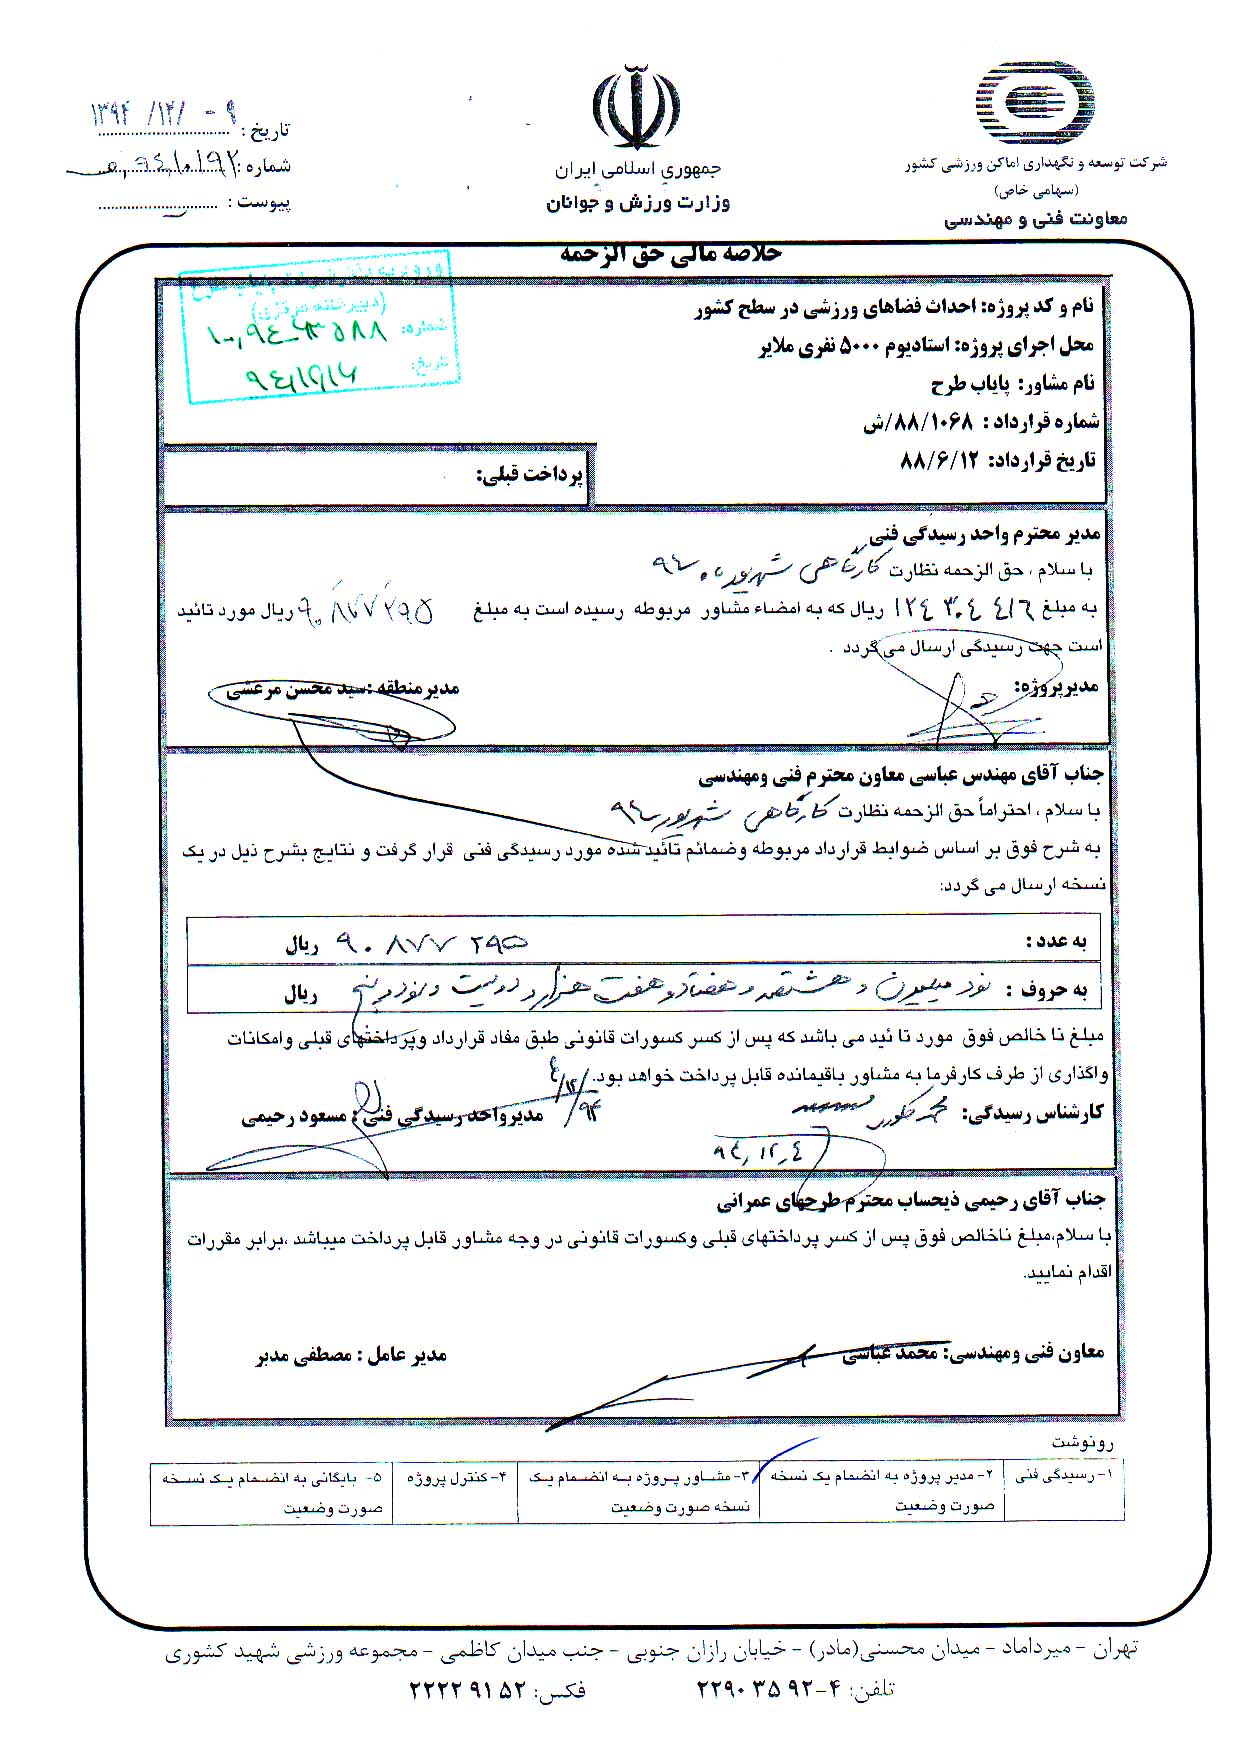 شرکت توسعه و نگهداری اماکن ورزشی کشور
(سهامی خاص)
معاونت فنی و مهندسی
جمهوری اسلامی ایران
وزارت ورزش و جوانان
تاریخ : ۱۳۹۴ /۱۲/ ۰۹
شماره :
پیوست :
خلاصه مالی حق الزحمه
(دبیرخانه مرکزی)
شماره:
تاریخ:
نام و کد پروژه: احداث فضاهای ورزشی در سطح کشور
محل اجرای پروژه: استادیوم ۵۰۰۰ نفری ملایر
نام مشاور: پایاب طرح
شماره قرارداد : ۸۸/۱۰۶۸/ش
تاریخ قرارداد: ۸۸/۶/۱۲
پرداخت قبلی:
مدیر محترم واحد رسیدگی فنی
با سلام ، حق الزحمه نظارت کارگاهی شهریور ماه ۹۴
به مبلغ ۱۲۴ ۳۰۴ ۴۱۶ ریال که به امضاء مشاور مربوطه رسیده است به مبلغ ۹۰ ۸۷۷ ۲۹۵ ریال مورد تائید
است جهت رسیدگی ارسال می گردد .
مدیرپروژه:
مدیرمنطقه :سید محسن مرعشی
جناب آقای مهندس عباسی معاون محترم فنی ومهندسی
با سلام ، احتراماً حق الزحمه نظارت کارگاهی شهریور ۹۴
به شرح فوق بر اساس ضوابط قرارداد مربوطه وضمائم تائید شده مورد رسیدگی فنی قرار گرفت و نتایج بشرح ذیل در یک
نسخه ارسال می گردد:
به عدد : ۹۰ ۸۷۷ ۲۹۵ ریال
به حروف : نود میلیون و هشتصد و هفتاد و هفت هزار و دویست و نود و پنج ریال
مبلغ نا خالص فوق مورد تا ئید می باشد که پس از کسر کسورات قانونی طبق مفاد قرارداد وپرداختهای قبلی وامکانات
واگذاری از طرف کارفرما به مشاور باقیمانده قابل پرداخت خواهد بود.
کارشناس رسیدگی:
مدیرواحد رسیدگی فنی : مسعود رحیمی
۹۴/۱۲/۴
۹۴,۱۲,۴
جناب آقای رحیمی ذیحساب محترم طرحهای عمرانی
با سلام،مبلغ ناخالص فوق پس از کسر پرداختهای قبلی وکسورات قانونی در وجه مشاور قابل پرداخت میباشد ،برابر مقررات
اقدام نمایید.
معاون فنی ومهندسی: محمد عباسی
مدیر عامل : مصطفی مدبر
رونوشت
۱- رسیدگی فنی
۲- مدیر پروژه به انضمام یک نسخه
صورت وضعیت
۳- مشاور پروژه به انضمام یک
نسخه صورت وضعیت
۴- کنترل پروژه
۵- بایگانی به انضمام یک نسخه
صورت وضعیت
تهران - میرداماد - میدان محسنی(مادر) - خیابان رازان جنوبی - جنب میدان کاظمی - مجموعه ورزشی شهید کشوری
تلفن: ۴-۹۲ ۳۵ ۲۲۹۰
فکس: ۵۲ ۹۱ ۲۲۲۲